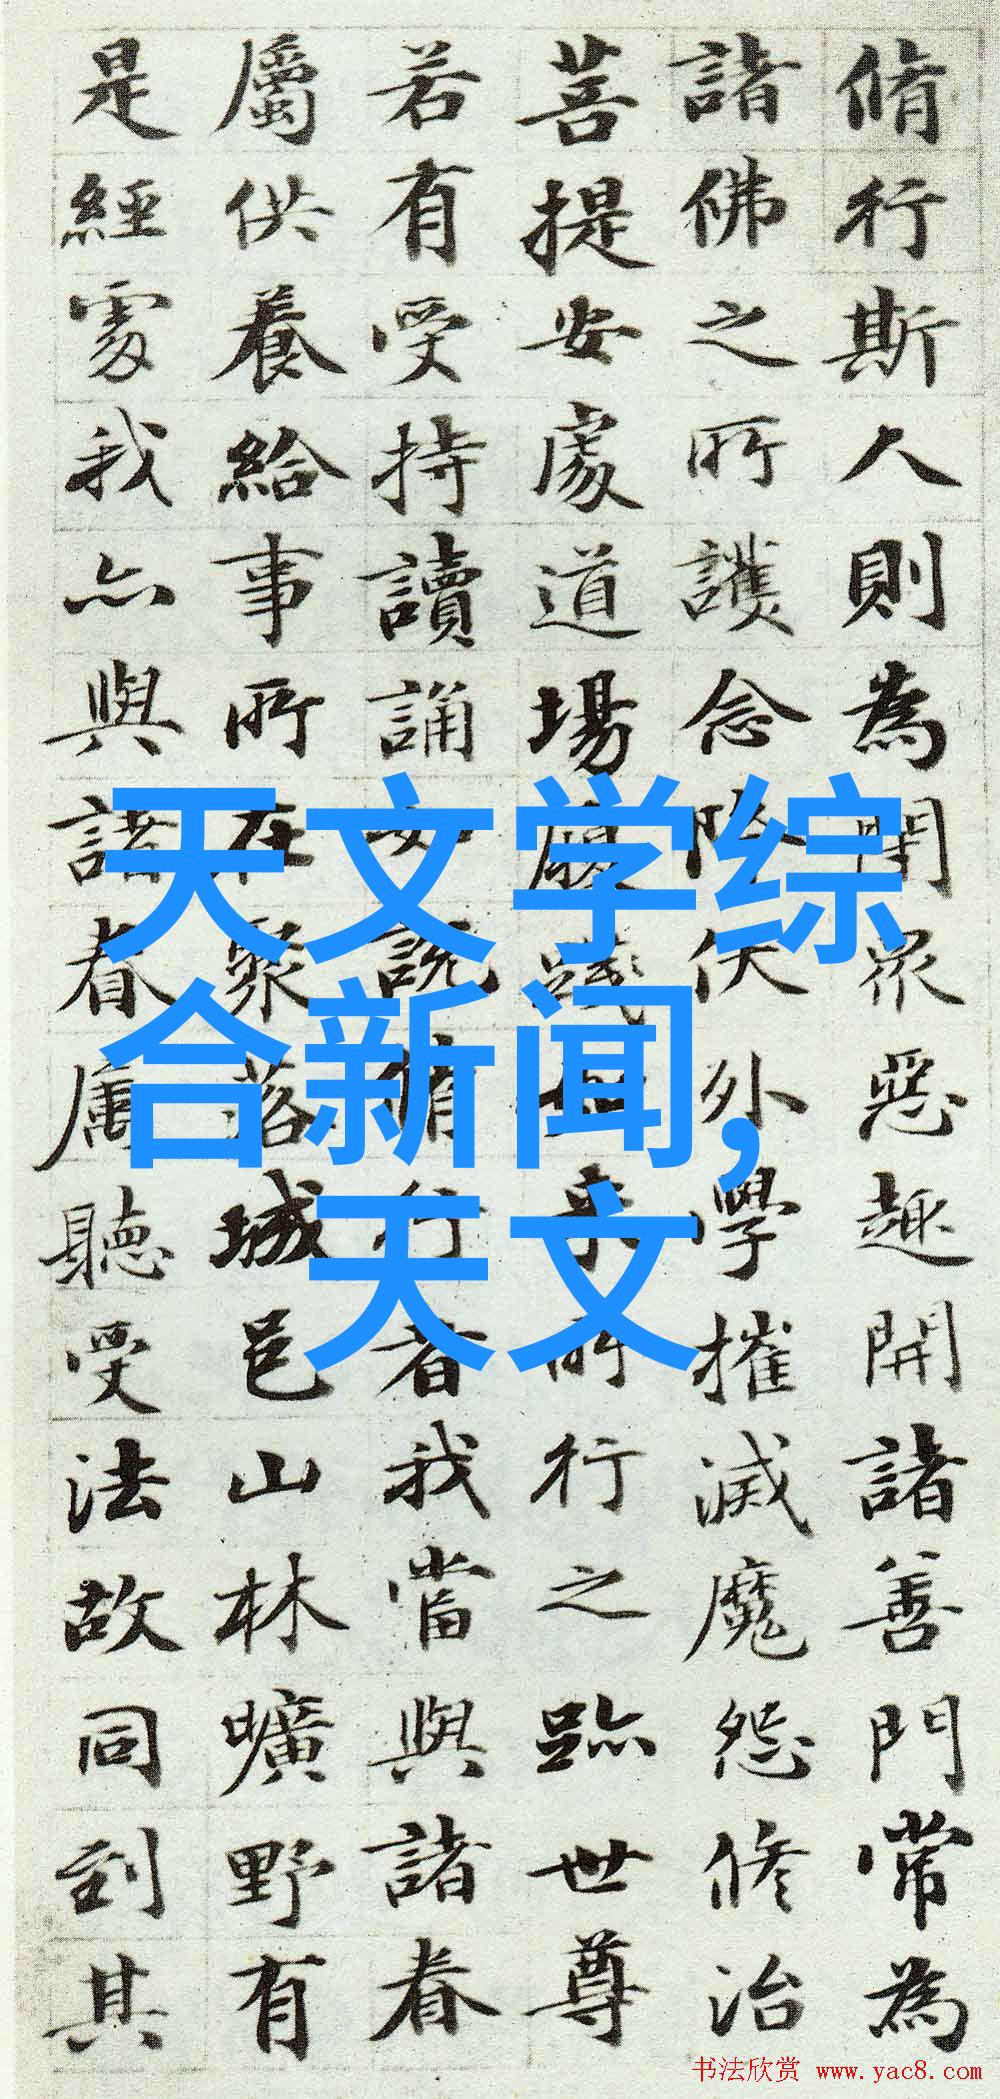 脩行斯人則為閇衆惡趣開諸善門常為
諸佛之所護念降伏外學摧滅魔怨修治
菩提安處道場履踐如來所行之跡世尊
若有受持讀誦如說脩行者我當與諸眷
屬供養給事所在聚落城邑山林曠野有
是經處我亦與諸眷屬聽受法故同到其
天文学综
合新闻,
天文
书法欣赏 www.yac8.com